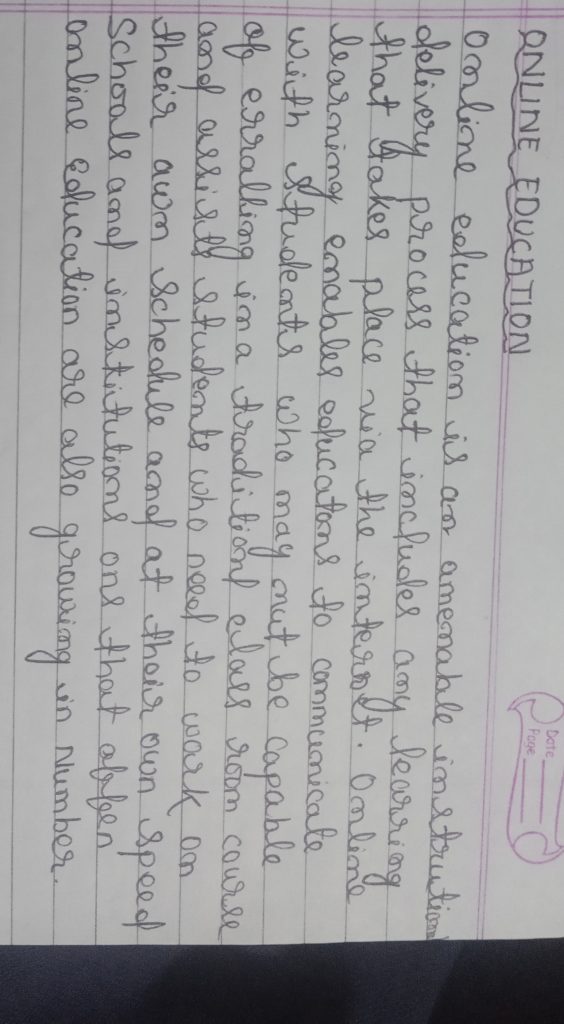 ONLINE EDUCATION
Date
Page
Online education is an amenable instrutional
delivery process that includes any learning
that takes place via the internet. Online
learning enables educatons to communicate
with students who may not be capable
of errolling in a traditional class room course
and assists students who need to work on
their own schedule and at their own speed
Schools and institutions ons that offen
online education are also growing in Number.